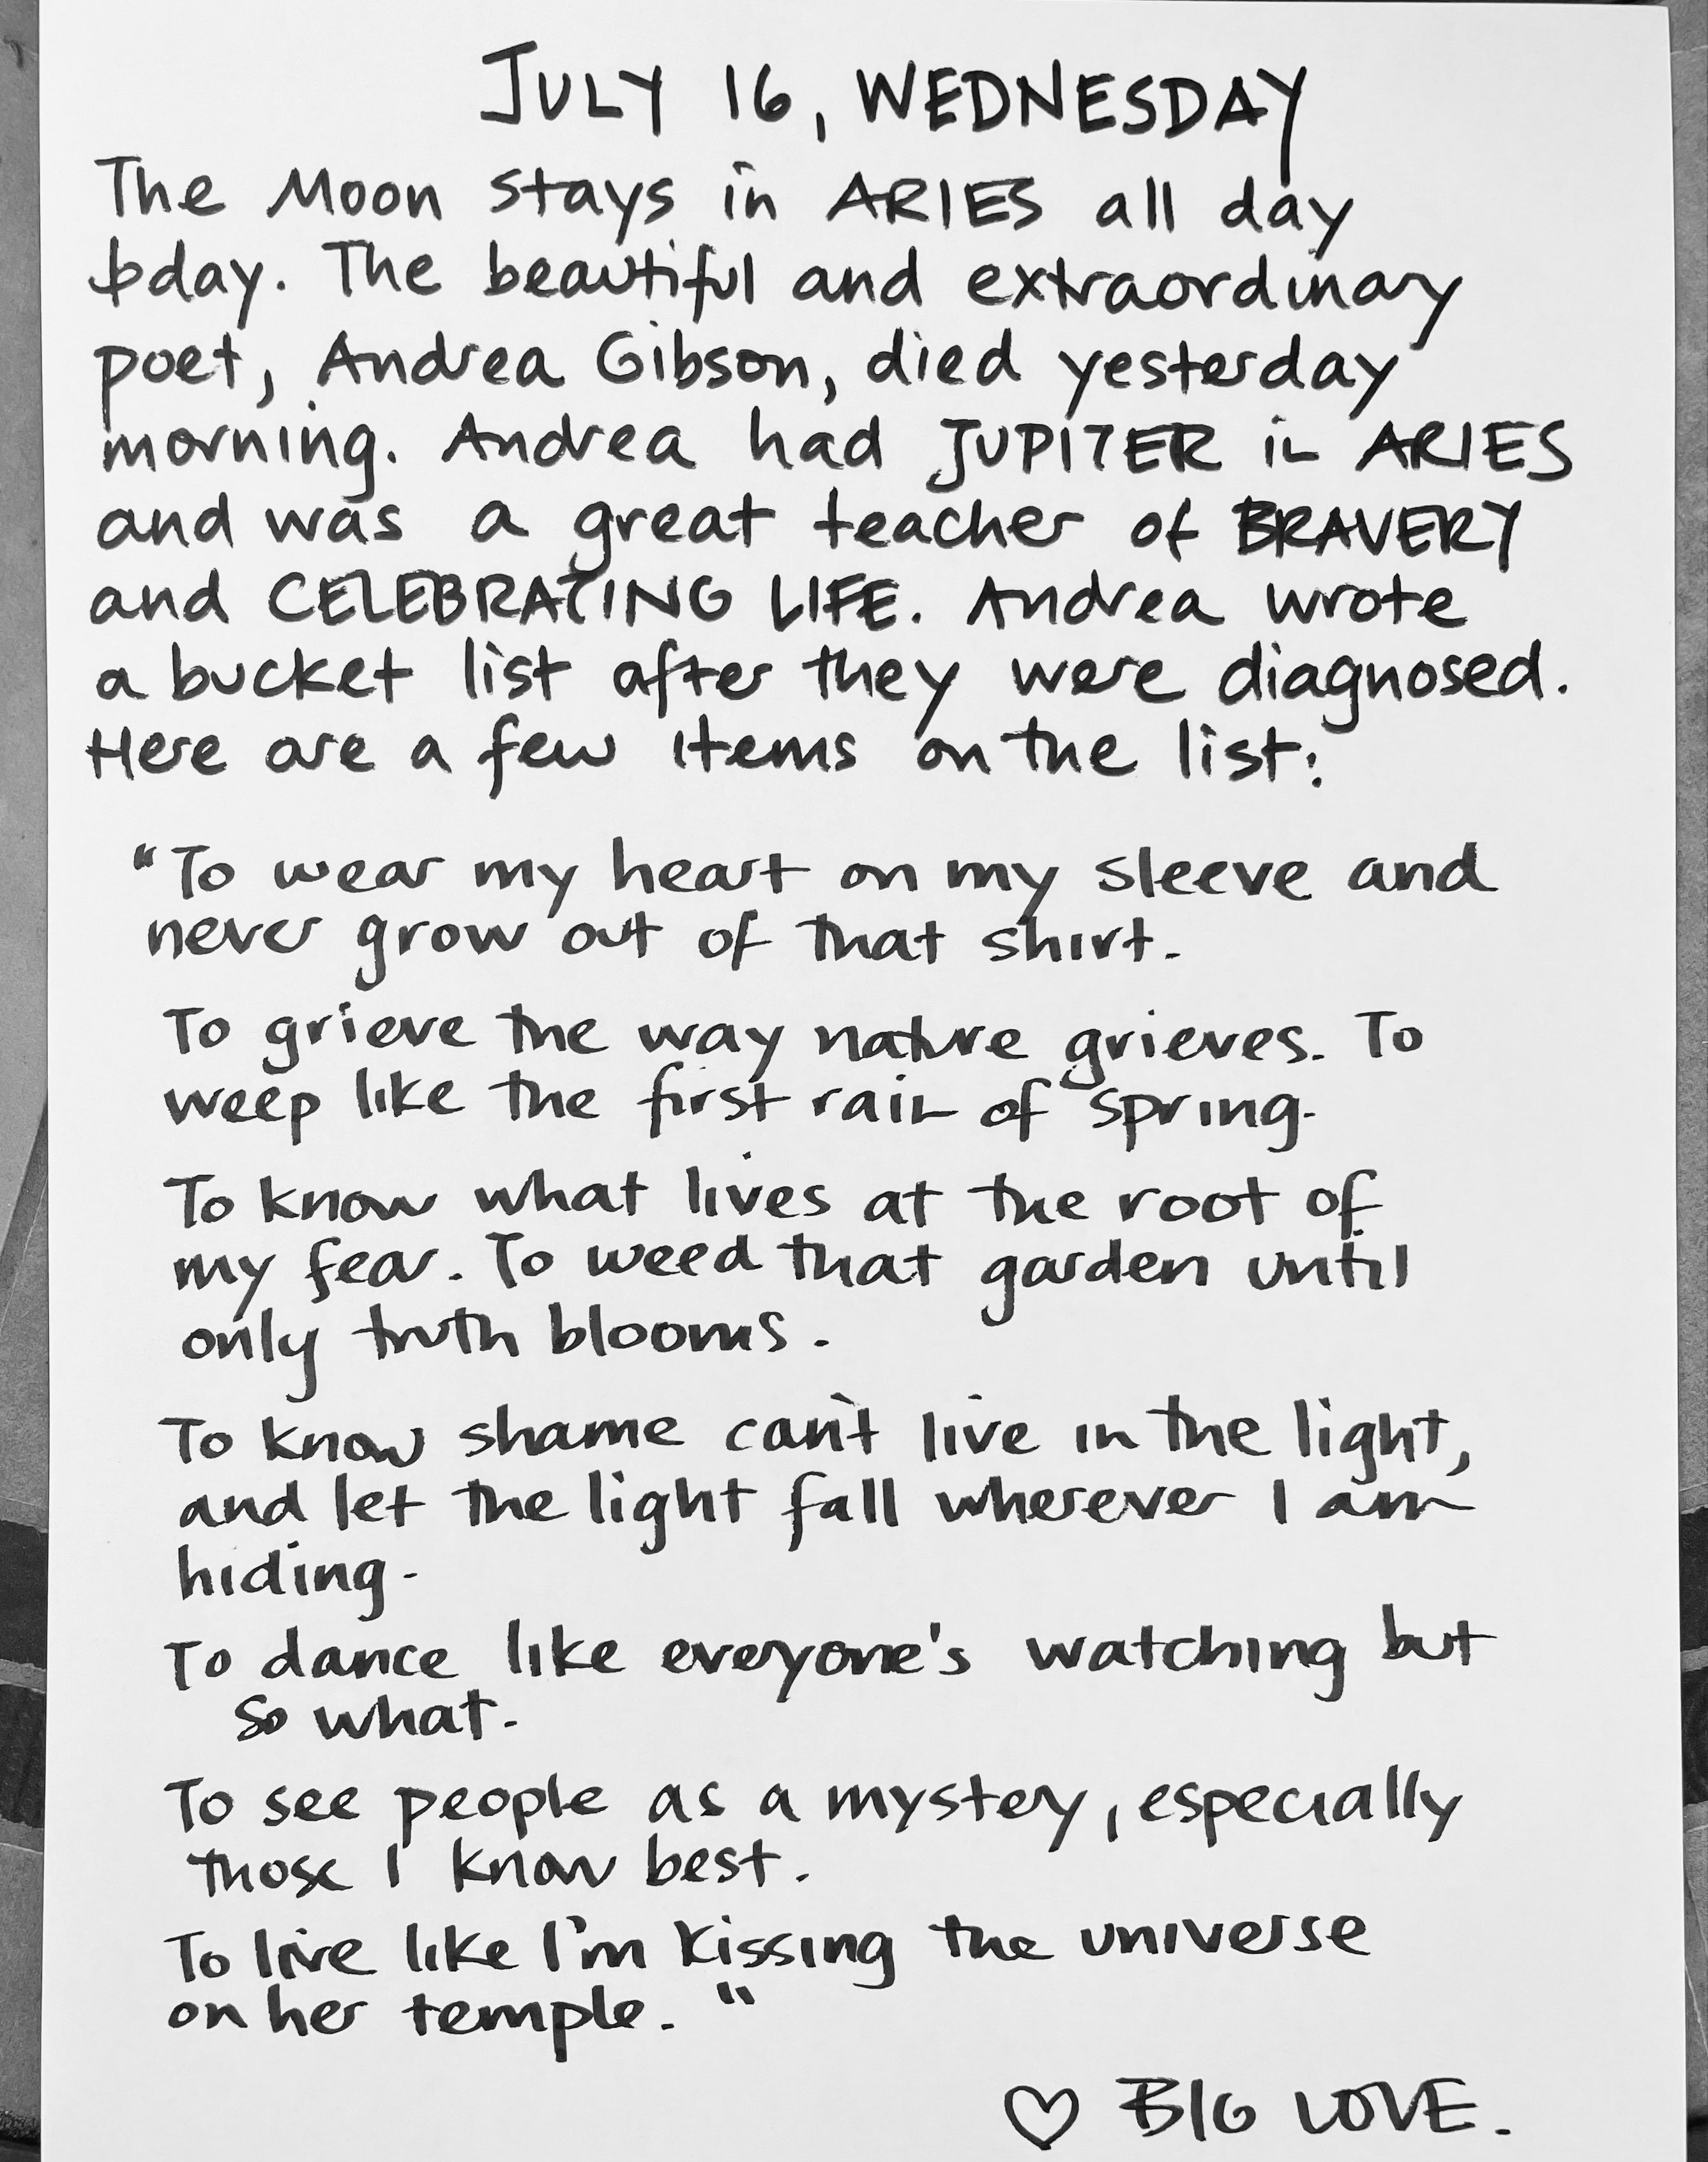 JULY 16, WEDNESDAY
The Moon stays in ARIES all day
today. The beautiful and extraordinary
poet, Andrea Gibson, died yesterday
morning. Andrea had JUPITER in ARIES
and was a great teacher of BRAVERY
and CELEBRATING LIFE. Andrea wrote
a bucket list after they were diagnosed.
Here are a few items on the list:
"To wear my heart on my sleeve and
never grow out of that shirt.
To grieve the way nature grieves. To
weep like the first rain of spring.
To know what lives at the root of
my fear. To weed that garden until
only truth blooms.
To know shame can't live in the light,
and let the light fall wherever I am
hiding.
To dance like everyone's watching but
so what.
To see people as a mystery, especially
those I know best.
To live like I'm kissing the universe
on her temple."
♡ BIG LOVE.